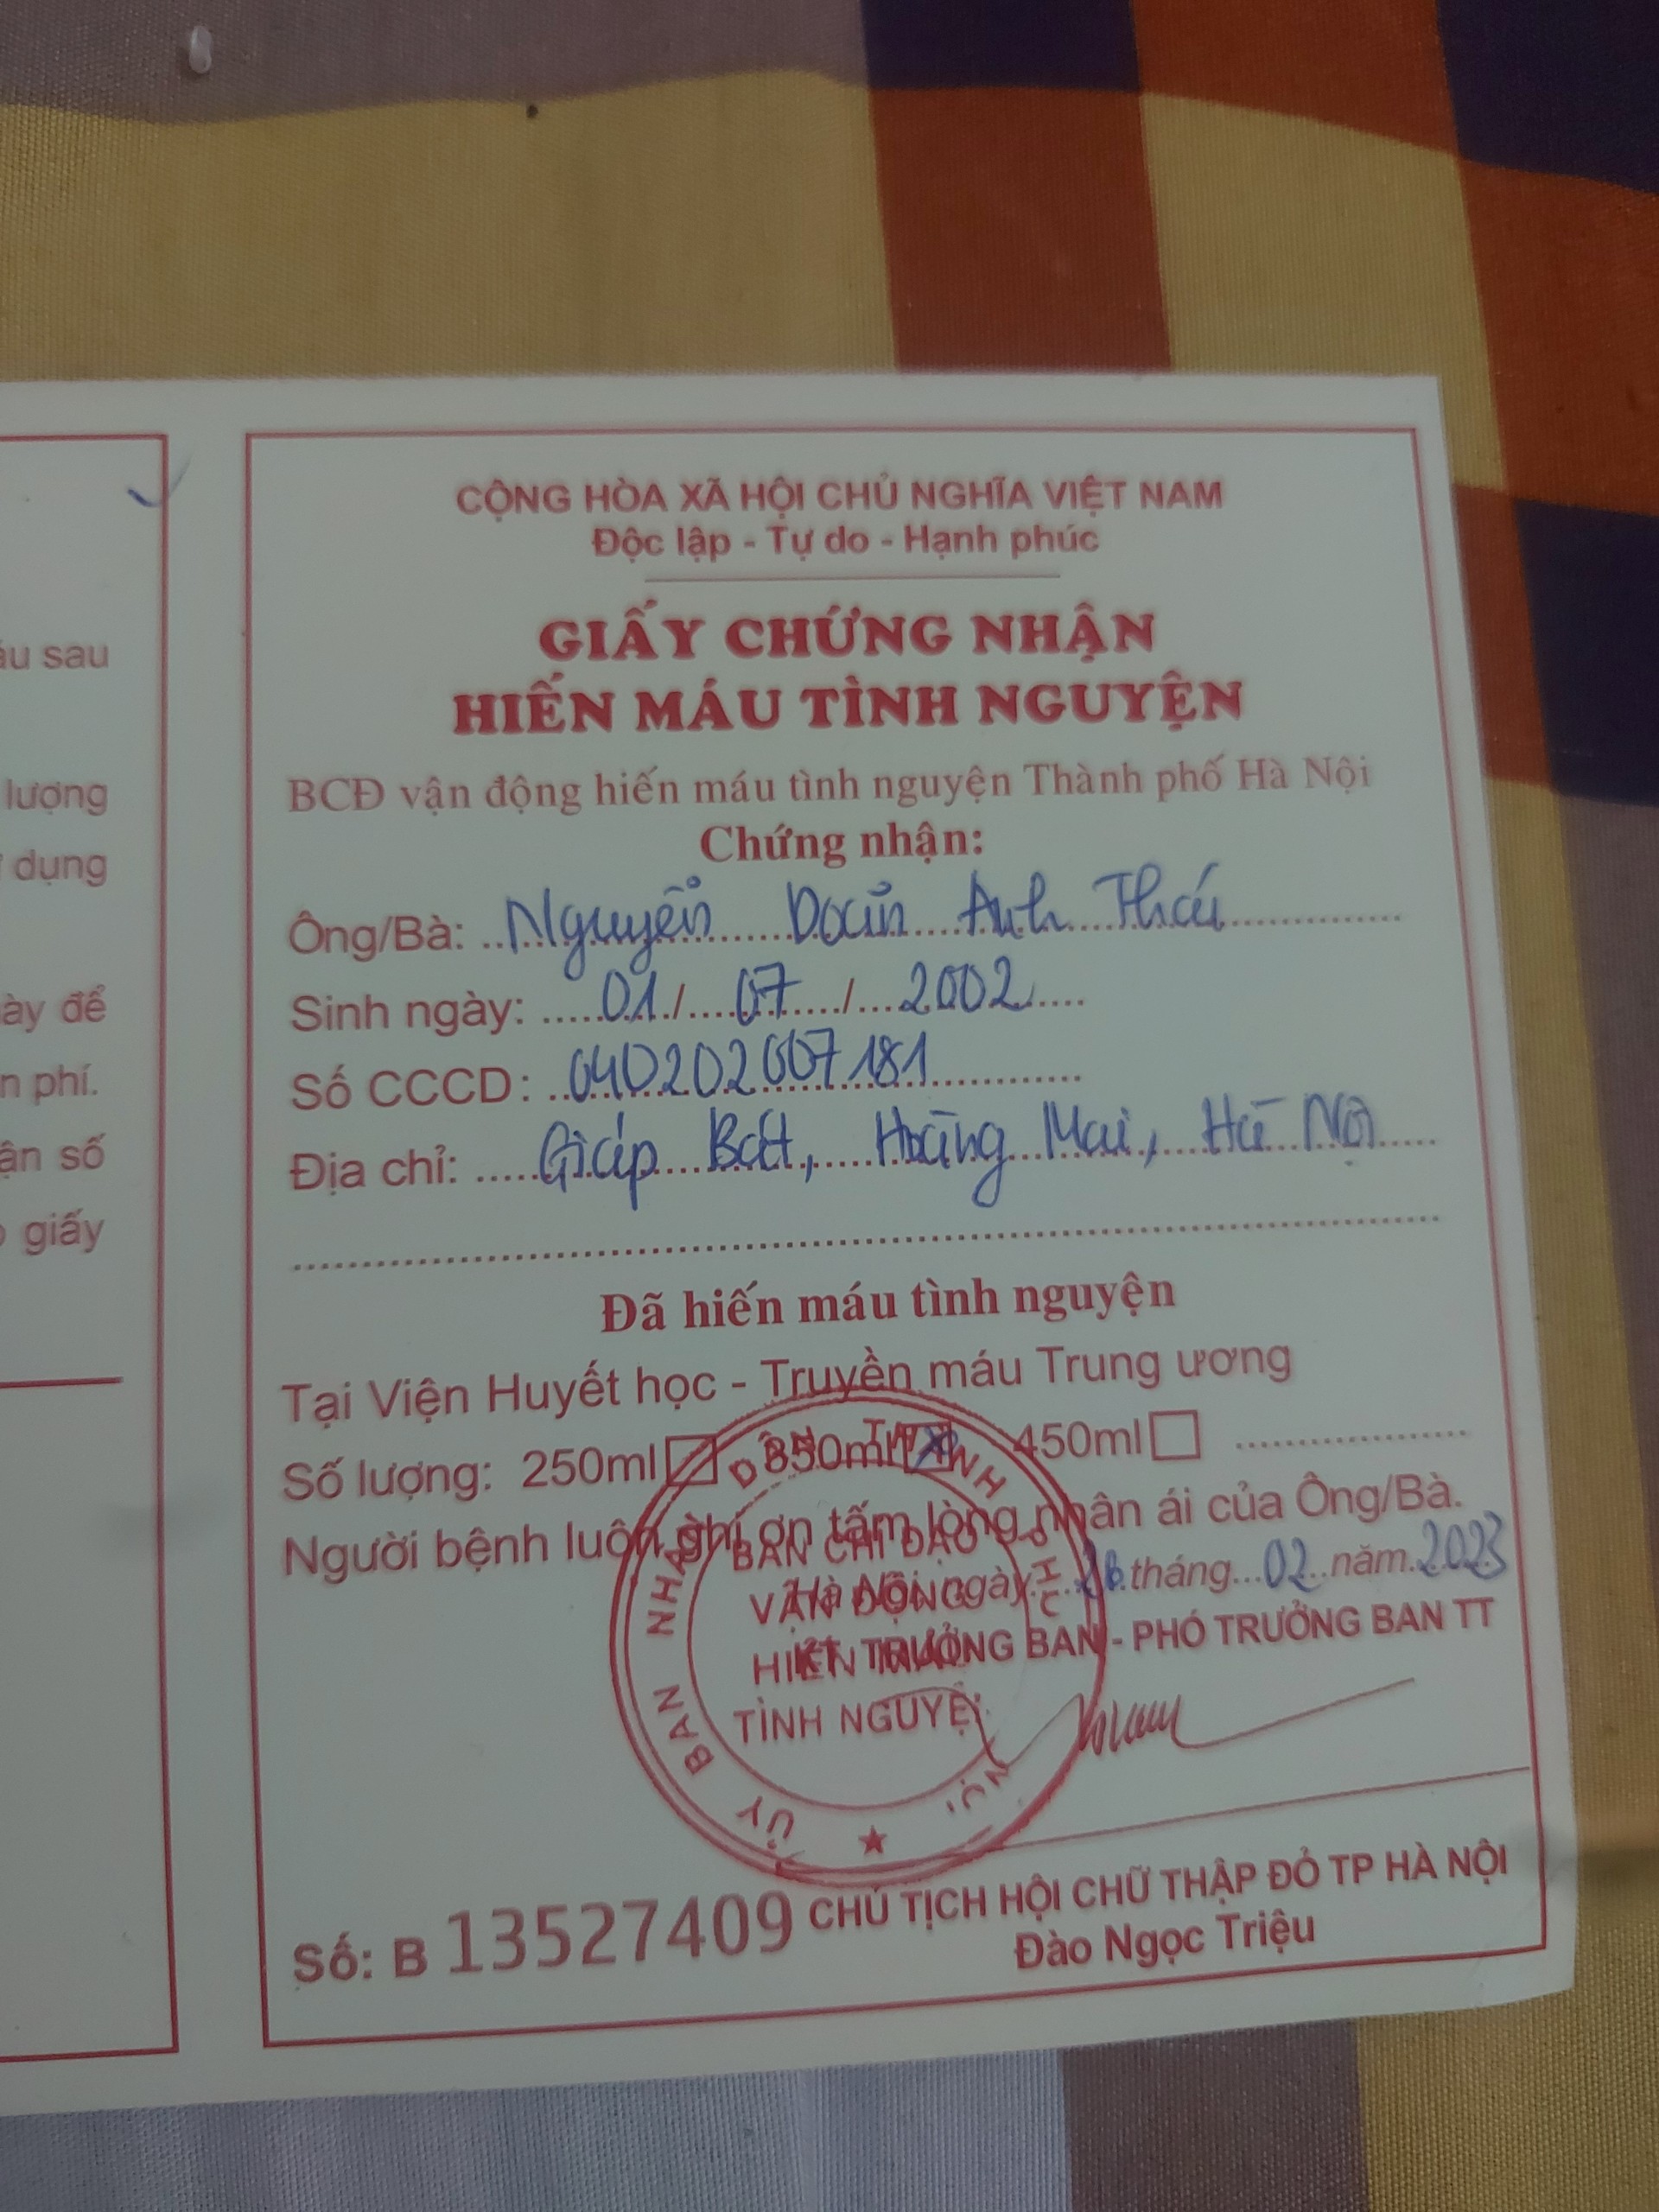 CỘNG HÒA XÃ HỘI CHỦ NGHĨA VIỆT NAM
Độc lập - Tự do - Hạnh phúc
GIẤY CHỨNG NHẬN
HIẾN MÁU TÌNH NGUYỆN
BCĐ vận động hiến máu tình nguyện Thành phố Hà Nội
Chứng nhận:
Ông/Bà: Nguyễn Doãn Anh Thái
Sinh ngày: 01/07/2002
Số CCCD: 040202007181
Địa chỉ: Giáp Bát, Hoàng Mai, Hà Nội
Đã hiến máu tình nguyện
Tại Viện Huyết học - Truyền máu Trung ương
Số lượng: 250ml 350ml 450ml
Người bệnh luôn ghi ơn tấm lòng nhân ái của Ông/Bà.
Hà Nội, ngày tháng 02 năm 2023
KT. TRƯỞNG BAN - PHÓ TRƯỞNG BAN TT
ỦY BAN NHÂN DÂN
BAN CHỈ ĐẠO
VẬN ĐỘNG
HIẾN MÁU
TÌNH NGUYỆN
CHỦ TỊCH HỘI CHỮ THẬP ĐỎ TP HÀ NỘI
Đào Ngọc Triệu
Số: B 13527409
sau
lượng
dụng
để
phí.
số
giấy